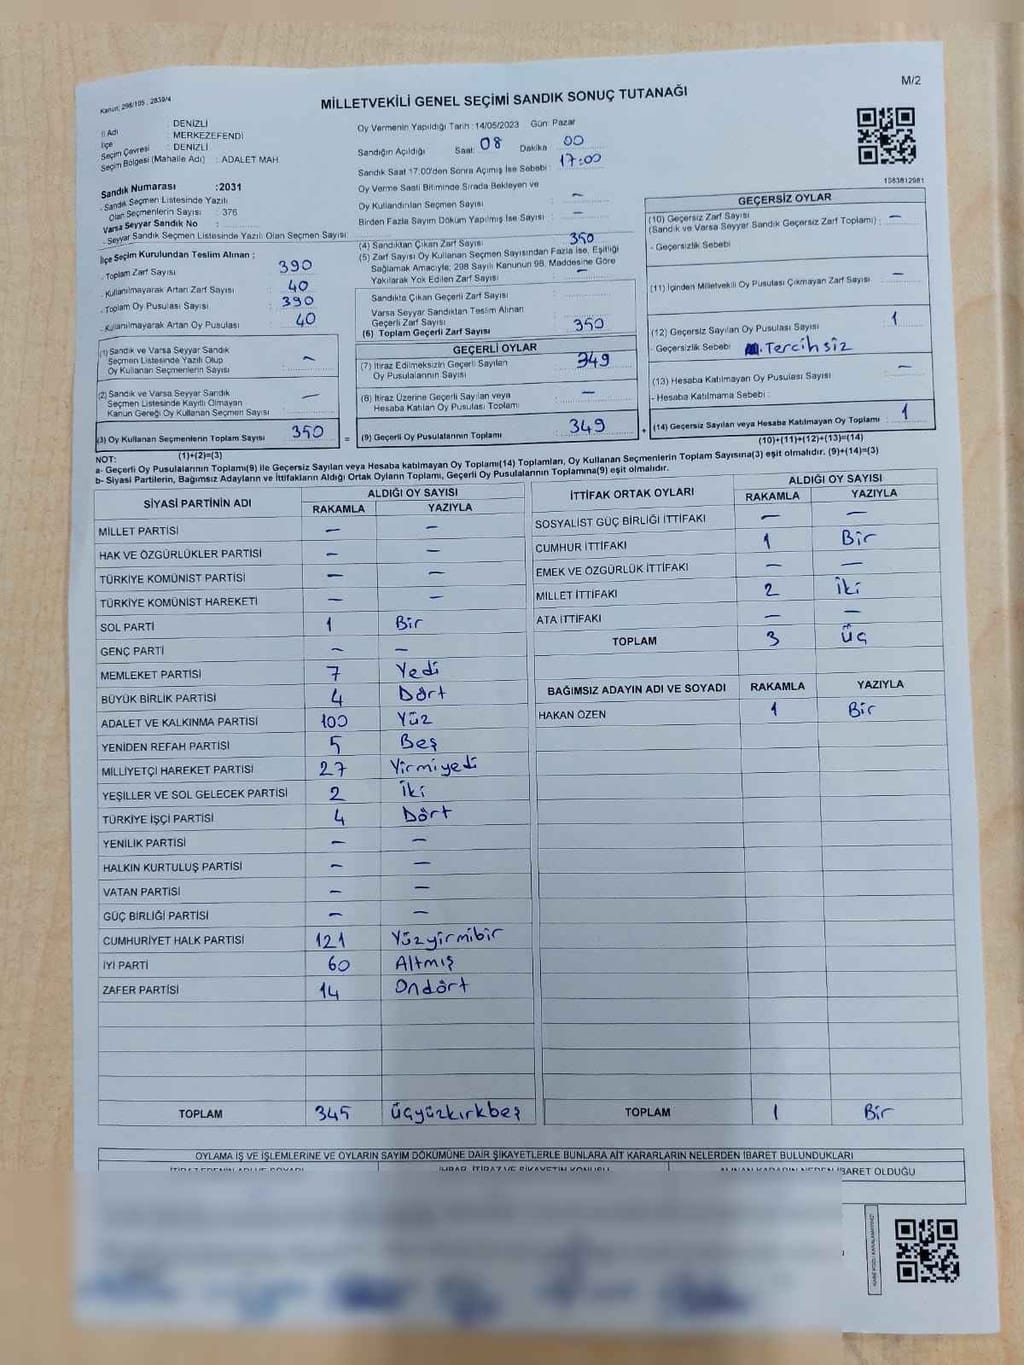 M/2
Kanun: 298/105 , 2839/4
MİLLETVEKİLİ GENEL SEÇİMİ SANDIK SONUÇ TUTANAĞI
İl Adı : DENİZLİ
İlçe : MERKEZEFENDİ
Seçim Çevresi : DENİZLİ
Seçim Bölgesi (Mahalle Adı) : ADALET MAH.
Oy Vermenin Yapıldığı Tarih :14/05/2023 Gün: Pazar
Sandığın Açıldığı Saat: 08 Dakika 00
Sandık Saat 17:00'den Sonra Açılmış İse Sebebi : 17:00
Oy Verme Saati Bitiminde Sırada Bekleyen ve
Oy Kullandırılan Seçmen Sayısı : –
Birden Fazla Sayım Döküm Yapılmış İse Sayısı : –
1983812981
Sandık Numarası :2031
- Sandık Seçmen Listesinde Yazılı
Olan Seçmenlerin Sayısı : 376
Varsa Seyyar Sandık No :
- Seyyar Sandık Seçmen Listesinde Yazılı Olan Seçmen Sayısı:
İlçe Seçim Kurulundan Teslim Alınan ;
- Toplam Zarf Sayısı 390
- Kullanılmayarak Artan Zarf Sayısı 40
- Toplam Oy Pusulası Sayısı 390
- Kullanılmayarak Artan Oy Pusulası 40
(1) Sandık ve Varsa Seyyar Sandık
Seçmen Listesinde Yazılı Olup
Oy Kullanan Seçmenlerin Sayısı : –
(2) Sandık ve Varsa Seyyar Sandık
Seçmen Listesinde Kayıtlı Olmayan
Kanun Gereği Oy Kullanan Seçmen Sayısı : –
(3) Oy Kullanan Seçmenlerin Toplam Sayısı 350
(1)+(2)=(3)
(4) Sandıktan Çıkan Zarf Sayısı 350
(5) Zarf Sayısı Oy Kullanan Seçmen Sayısından Fazla İse, Eşitliği
Sağlamak Amacıyla; 298 Sayılı Kanunun 98. Maddesine Göre
Yakılarak Yok Edilen Zarf Sayısı : –
Sandıkta Çıkan Geçerli Zarf Sayısı :
Varsa Seyyar Sandıktan Teslim Alınan
Geçerli Zarf Sayısı :
(6) Toplam Geçerli Zarf Sayısı 350
GEÇERLİ OYLAR
(7) İtiraz Edilmeksizin Geçerli Sayılan
Oy Pusulalarının Sayısı : 349
(8) İtiraz Üzerine Geçerli Sayılan veya
Hesaba Katılan Oy Pusulası Toplamı : –
= (9) Geçerli Oy Pusulalarının Toplamı 349
GEÇERSİZ OYLAR
(10) Geçersiz Zarf Sayısı
(Sandık ve Varsa Seyyar Sandık Geçersiz Zarf Toplamı) : –
- Geçersizlik Sebebi
(11) İçinden Milletvekili Oy Pusulası Çıkmayan Zarf Sayısı –
(12) Geçersiz Sayılan Oy Pusulası Sayısı 1
- Geçersizlik Sebebi Tercihsiz
(13) Hesaba Katılmayan Oy Pusulası Sayısı –
- Hesaba Katılmama Sebebi :
+ (14) Geçersiz Sayılan veya Hesaba Katılmayan Oy Toplamı 1
(10)+(11)+(12)+(13)=(14)
NOT:
a- Geçerli Oy Pusulalarının Toplamı(9) ile Geçersiz Sayılan veya Hesaba katılmayan Oy Toplamı(14) Toplamları, Oy Kullanan Seçmenlerin Toplam Sayısına(3) eşit olmalıdır. (9)+(14)=(3)
b- Siyasi Partilerin, Bağımsız Adayların ve İttifakların Aldığı Ortak Oyların Toplamı, Geçerli Oy Pusulalarının Toplamına(9) eşit olmalıdır.
SİYASİ PARTİNİN ADI ALDIĞI OY SAYISI
RAKAMLA YAZIYLA
MİLLET PARTİSİ – –
HAK VE ÖZGÜRLÜKLER PARTİSİ – –
TÜRKİYE KOMÜNİST PARTİSİ – –
TÜRKİYE KOMÜNİST HAREKETİ – –
SOL PARTİ 1 Bir
GENÇ PARTİ – –
MEMLEKET PARTİSİ 7 Yedi
BÜYÜK BİRLİK PARTİSİ 4 Dört
ADALET VE KALKINMA PARTİSİ 100 Yüz
YENİDEN REFAH PARTİSİ 5 Beş
MİLLİYETÇİ HAREKET PARTİSİ 27 Yirmiyedi
YEŞİLLER VE SOL GELECEK PARTİSİ 2 İki
TÜRKİYE İŞÇİ PARTİSİ 4 Dört
YENİLİK PARTİSİ – –
HALKIN KURTULUŞ PARTİSİ – –
VATAN PARTİSİ – –
GÜÇ BİRLİĞİ PARTİSİ – –
CUMHURİYET HALK PARTİSİ 121 Yüzyirmibir
İYİ PARTİ 60 Altmış
ZAFER PARTİSİ 14 Ondört
TOPLAM 345 üçyüzkırkbeş
İTTİFAK ORTAK OYLARI ALDIĞI OY SAYISI
RAKAMLA YAZIYLA
SOSYALİST GÜÇ BİRLİĞİ İTTİFAKI – –
CUMHUR İTTİFAKI 1 Bir
EMEK VE ÖZGÜRLÜK İTTİFAKI – –
MİLLET İTTİFAKI 2 İki
ATA İTTİFAKI – –
TOPLAM 3 üç
BAĞIMSIZ ADAYIN ADI VE SOYADI RAKAMLA YAZIYLA
HAKAN ÖZEN 1 Bir
TOPLAM 1 Bir
OYLAMA İŞ VE İŞLEMLERİNE VE OYLARIN SAYIM DÖKÜMÜNE DAİR ŞİKAYETLERLE BUNLARA AİT KARARLARIN NELERDEN İBARET BULUNDUKLARI
İTİRAZ EDENİN ADI VE SOYADI İHBAR, İTİRAZ VE ŞİKAYETİN KONUSU ALINAN KARARIN NEDEN İBARET OLDUĞU